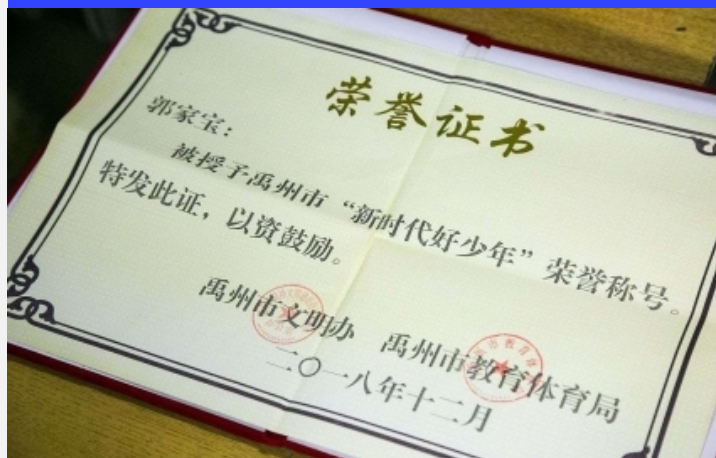 荣誉证书
郭家宝：
被授予禹州市“新时代好少年”荣誉称号。
特发此证，以资鼓励。
禹州市文明办 禹州市教育体育局
二〇一八年十二月